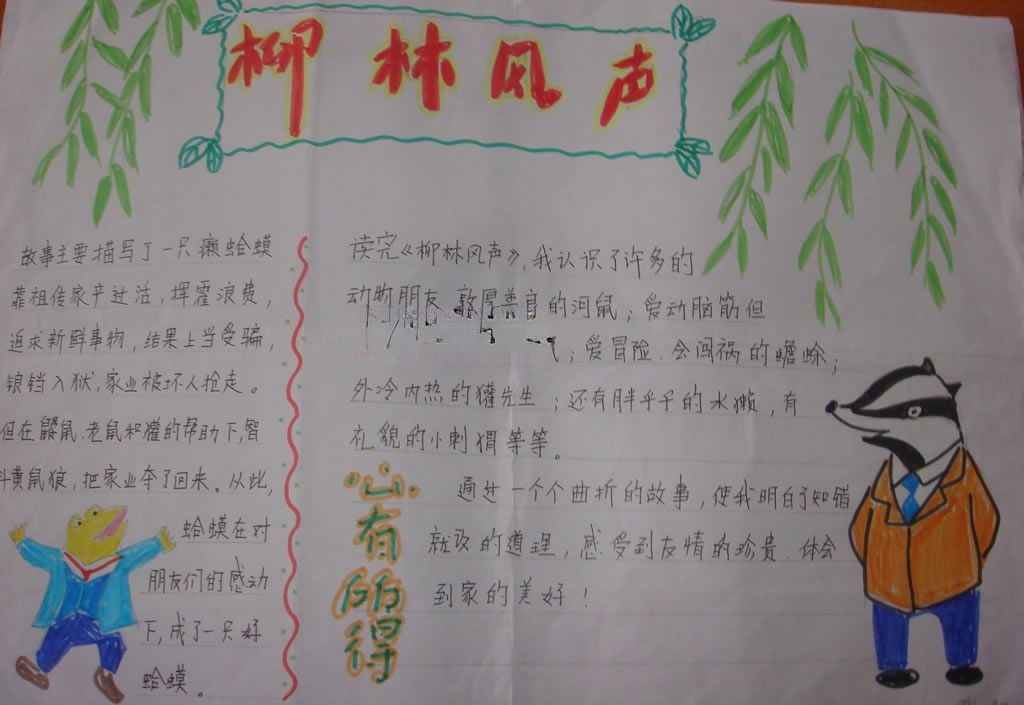 柳林风声
故事主要描写了一只癞蛤蟆
靠祖传家产过活，挥霍浪费，
追求新鲜事物，结果上当受骗，
锒铛入狱，家业被坏人抢走。
但在鼹鼠、老鼠和獾的帮助下，智
斗黄鼠狼，把家业夺了回来。从此，
蛤蟆在对
朋友们的感动
下，成了一只好
蛤蟆。
读完《柳林风声》，我认识了许多的
动物朋友 敦厚善良的河鼠；爱动脑筋但
；爱冒险、会闯祸的蟾蜍；
外冷内热的獾先生；还有胖乎乎的水獭，有
礼貌的小刺猬等等。
心有所得
通过一个个曲折的故事，使我明白了知错
就改的道理，感受到友情的珍贵、体会
到家的美好！